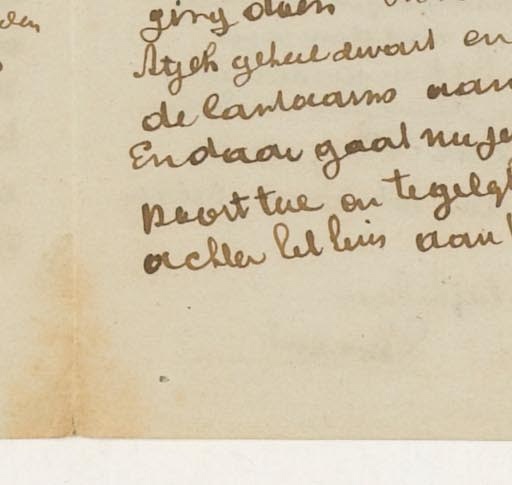 den
ging doen
Atjeh geheel dwars en
de aan
En daar gaat nu je
poort toe en tegelijk
achter het huis aan